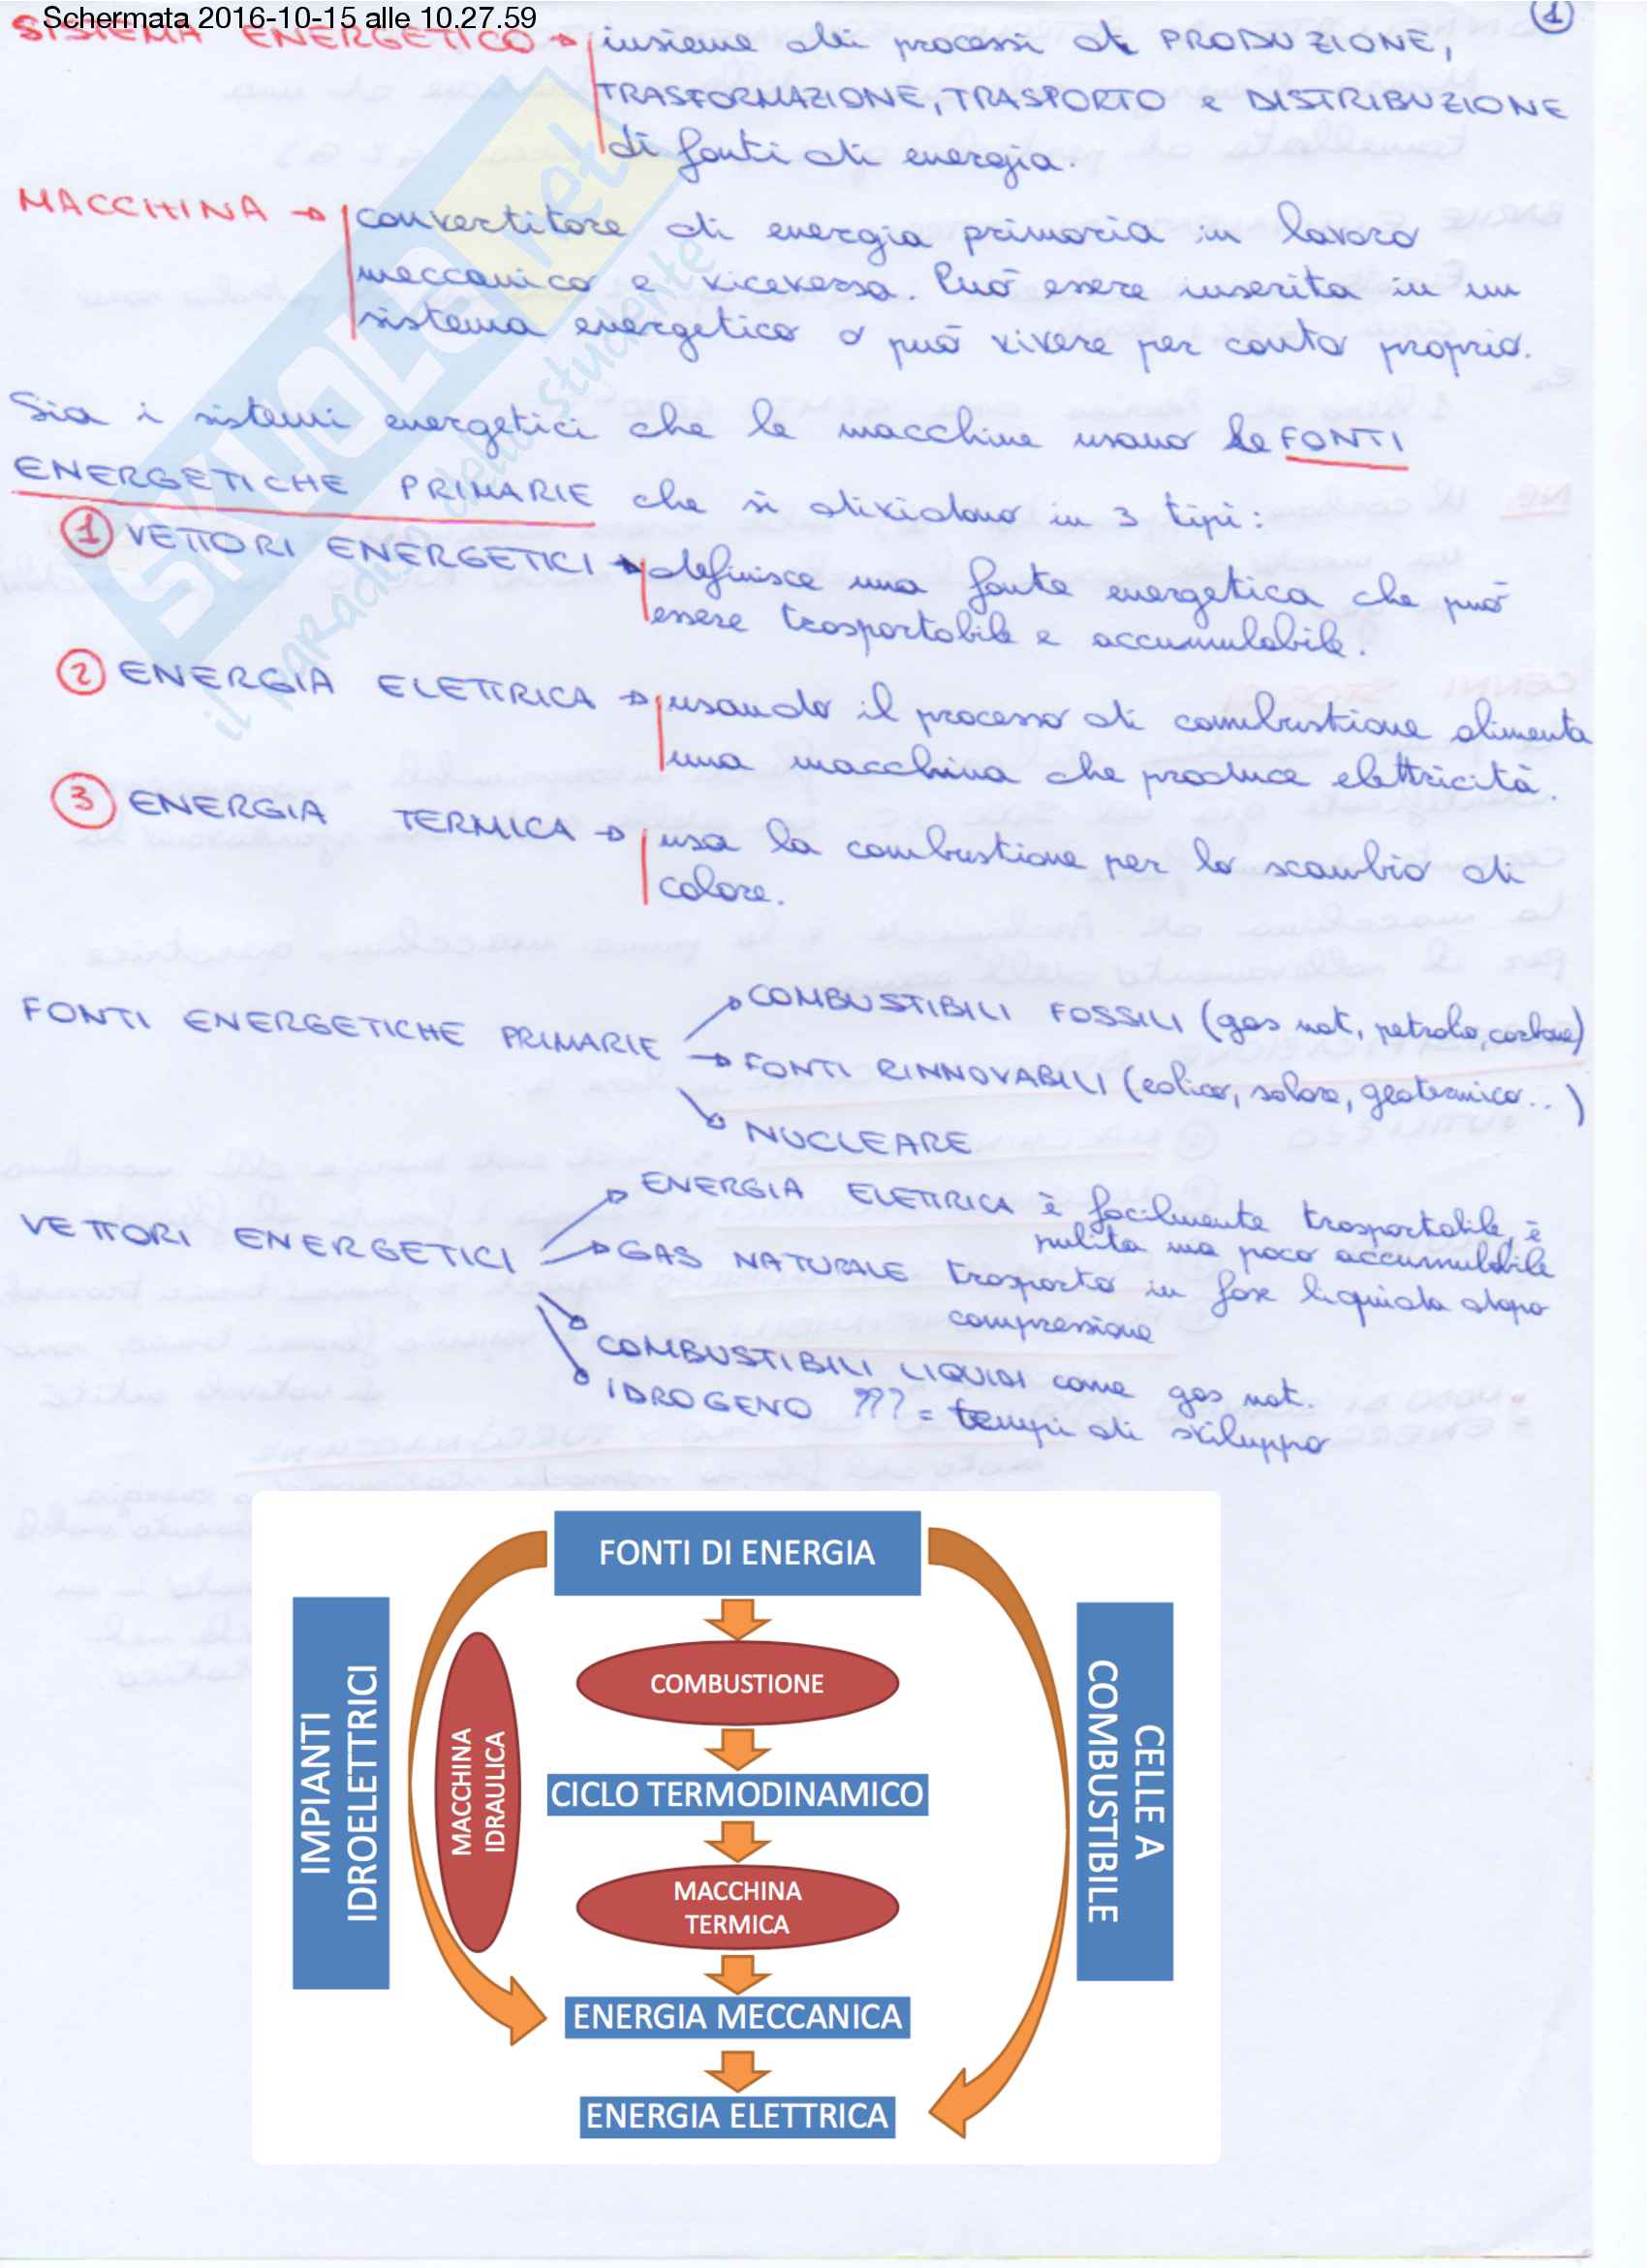 Schermata 2016-10-15 alle 10.27.59
1
SISTEMA ENERGETICO → insieme dei processi di PRODUZIONE,
TRASFORMAZIONE, TRASPORTO e DISTRIBUZIONE
di fonti di energia.
MACCHINA → convertitore di energia primaria in lavoro
meccanico e viceversa. Può essere inserita in un
sistema energetico o può vivere per conto proprio.
Sia i sistemi energetici che le macchine usano le FONTI
ENERGETICHE PRIMARIE che si dividono in 3 tipi:
1 VETTORI ENERGETICI → definisce una fonte energetica che può
essere trasportabile e accumulabile.
2 ENERGIA ELETTRICA → usando il processo di combustione alimenta
una macchina che produce elettricità.
3 ENERGIA TERMICA → usa la combustione per lo scambio di
calore.
FONTI ENERGETICHE PRIMARIE → COMBUSTIBILI FOSSILI (gas nat, petrolio, carbone)
→ FONTI RINNOVABILI (eolico, solare, geotermico..)
→ NUCLEARE
VETTORI ENERGETICI → ENERGIA ELETTRICA è facilmente trasportabile, è
pulita ma poco accumulabile
→ GAS NATURALE trasporto in fase liquida dopo
compressione
→ COMBUSTIBILI LIQUIDI come gas nat.
→ IDROGENO ??? = tempi di sviluppo
SKUOLA.net
il paRadiso dello studente
FONTI DI ENERGIA
COMBUSTIONE
CICLO TERMODINAMICO
MACCHINA
TERMICA
ENERGIA MECCANICA
ENERGIA ELETTRICA
IMPIANTI
IDROELETTRICI
MACCHINA
IDRAULICA
CELLE A
COMBUSTIBILE